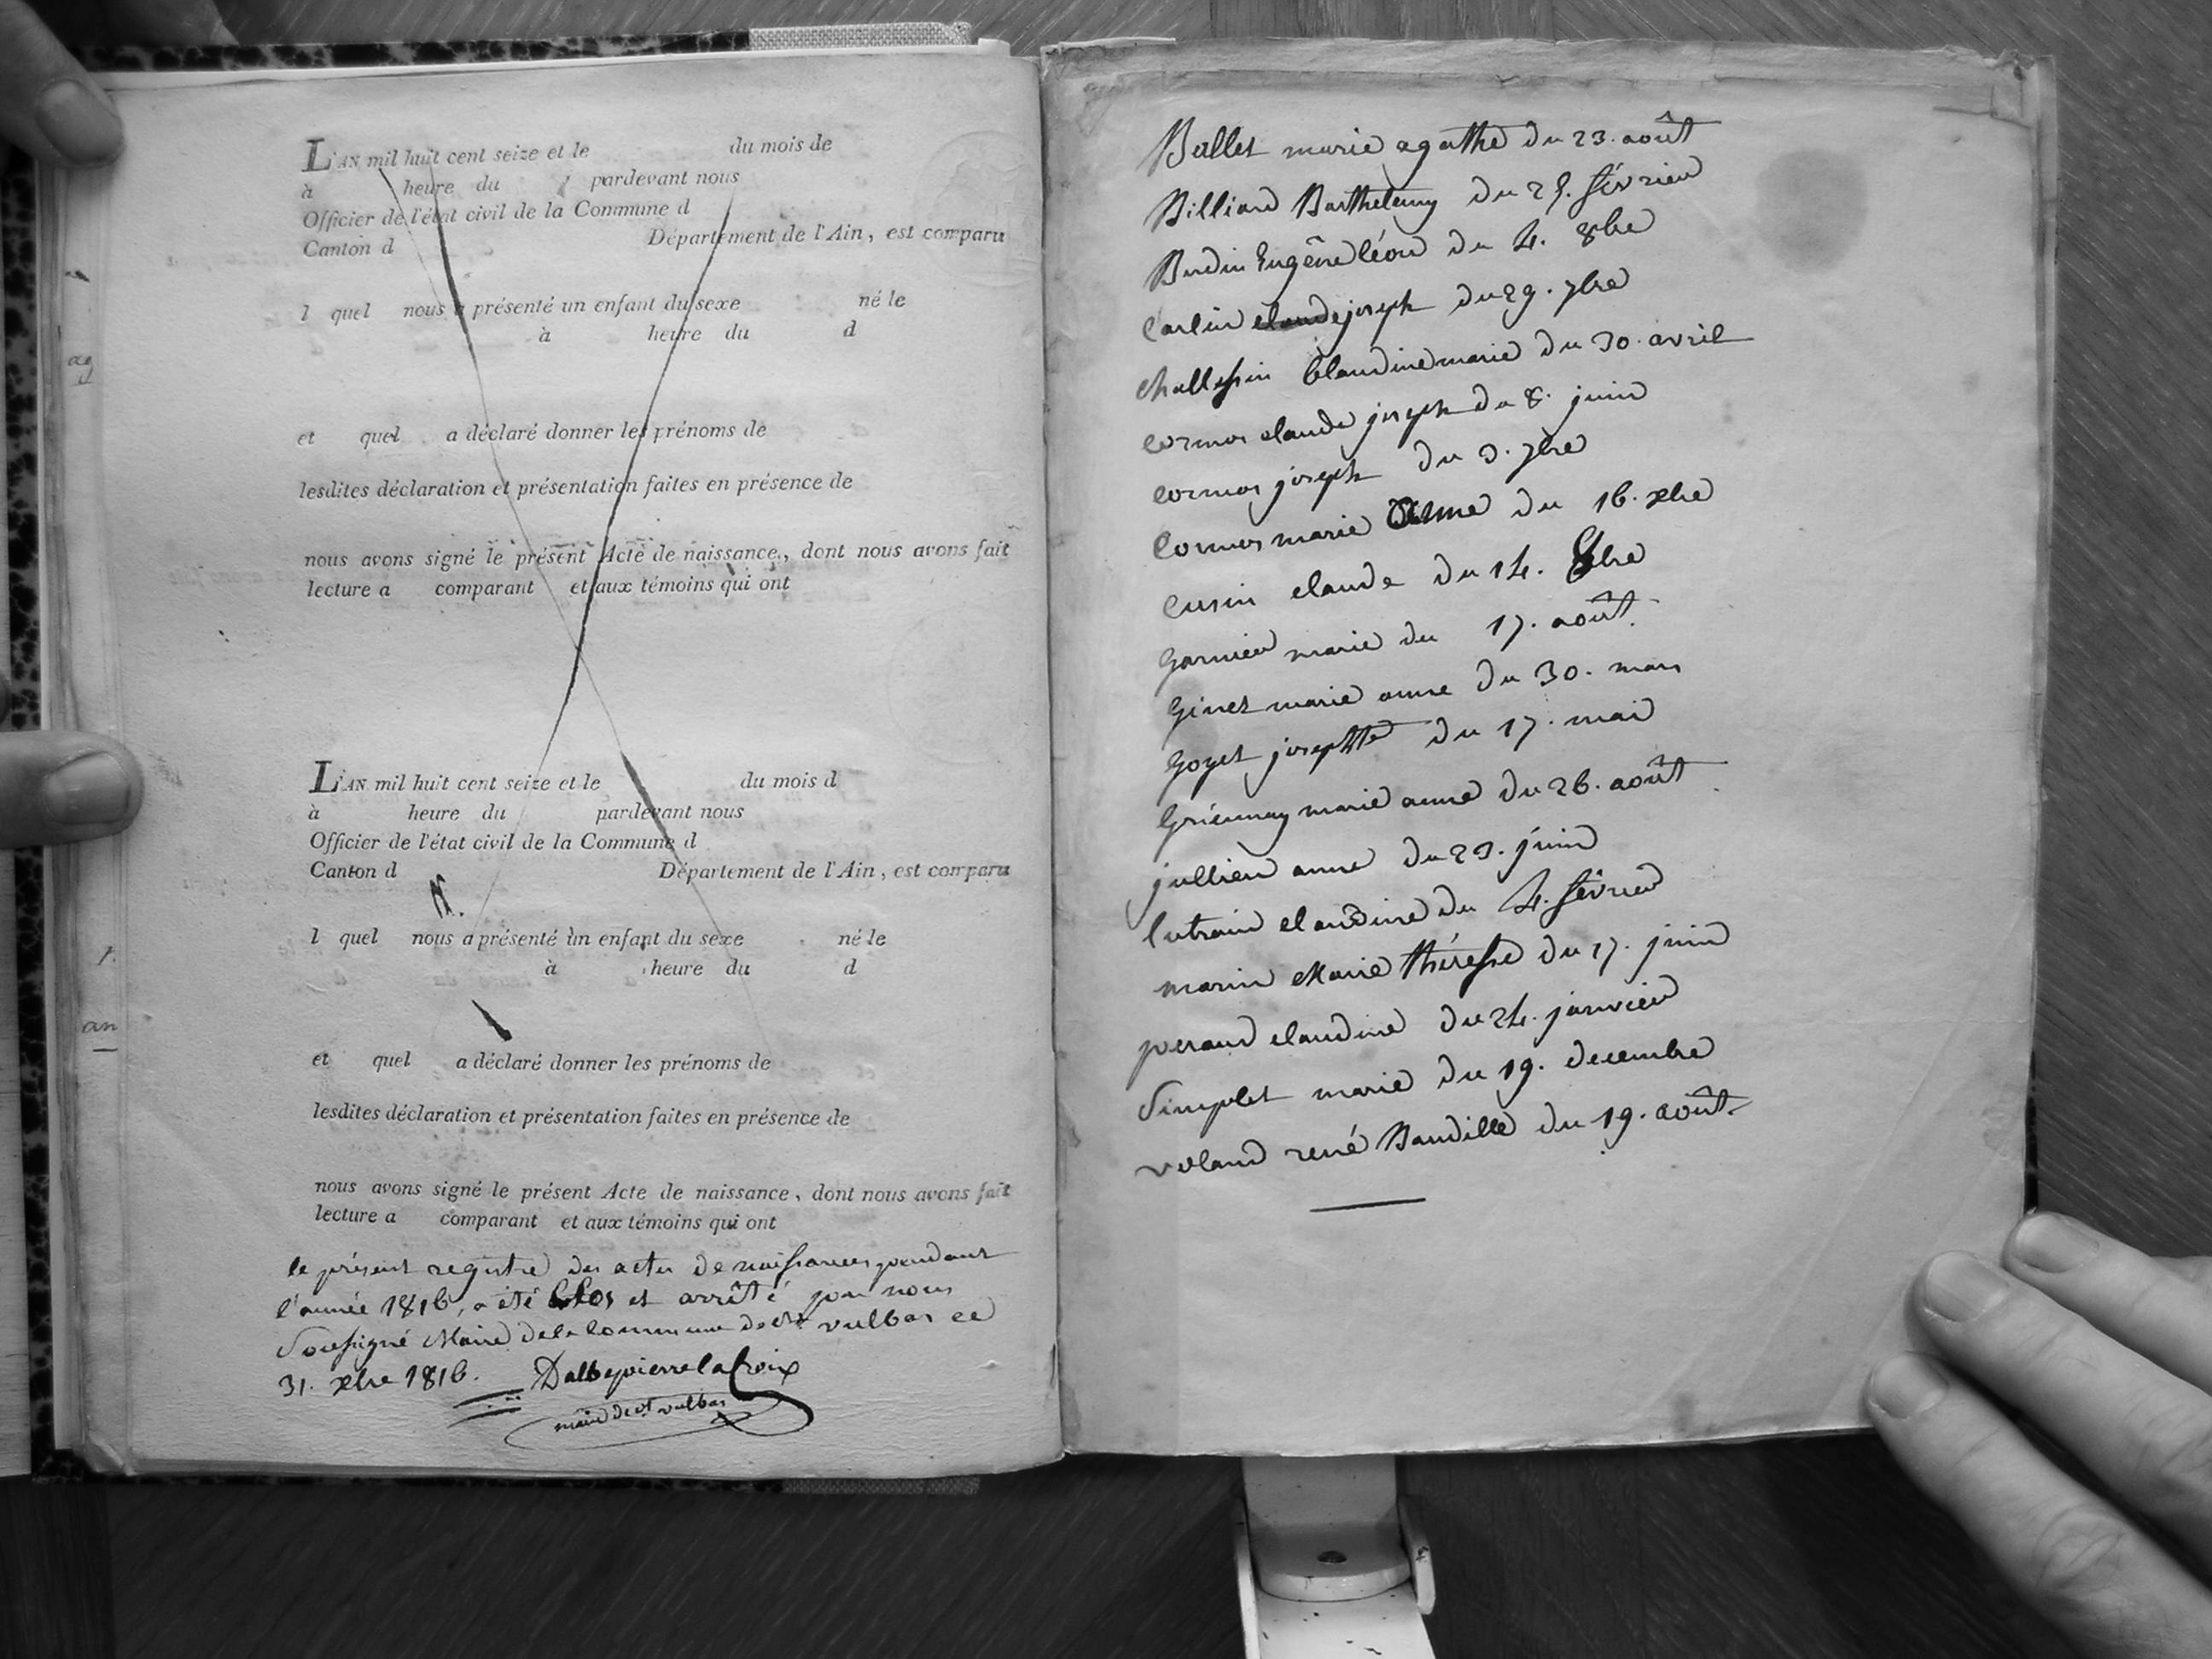 L'AN mil huit cent seize et le du mois de
à heure du pardevant nous
Officier de l'état civil de la Commune d
Canton d Département de l'Ain, est comparu
l quel nous a présenté un enfant du sexe né le
à heure du d
et quel a déclaré donner les prénoms de
lesdites déclaration et présentation faites en présence de
nous avons signé le présent Acte de naissance, dont nous avons fait
lecture a comparant et aux témoins qui ont
L'AN mil huit cent seize et le du mois d
à heure du pardevant nous
Officier de l'état civil de la Commune d
Canton d Département de l'Ain, est comparu
l quel nous a présenté un enfant du sexe né le
à heure du d
et quel a déclaré donner les prénoms de
lesdites déclaration et présentation faites en présence de
nous avons signé le présent Acte de naissance, dont nous avons fait
lecture a comparant et aux témoins qui ont
le présent registre des actes de naissances pendant
l'année 1816, a été clos et arrêté par nous
Soussigné Maire de la Commune de St vulbas ce
31. xbre 1816. Dalbepierre la Croix
maire de st vulbas
an
Ballet marie agathe du 23. août
Billiard Barthelemy du février
Budin Eugêne léon du 4. 8bre
Carlin claude joseph du 29. 7bre
challessin Claudine marie du 30. avril
cormos claude joseph du 8. juin
cormos joseph du 3. 7bre
Cormos marie anne du 16. xbre
Cusin claude du 14. 8bre
garnier marie du 17. août
ginet marie anne du 30. mars
goyet josephte du 17. mai
marie anne du 26. août
jullien anne du 23. juin
lutrain claudine du 4. février
marin Marie thérésse du 17. juin
peraud claudine du 24. janvier
Simplet marie du 19. decembre
voland rené Baudille du 19. août